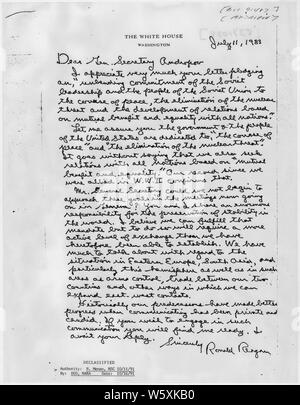 THE WHITE HOUSE
WASHINGTON
July 11, 1983
Dear Gen. Secretary Andropov
I appreciate very much your letter pledging
an "unbending commitment of the Soviet
leadership and the people of the Soviet Union to
the course of peace, the elimination of the nuclear
threat and the development of relations based
on mutual benefit and equality with all nations."
Let me assure you the government & the people
of the United States are dedicated to, "the course of
peace" and "the elimination of the nuclear threat".
It goes without saying that we also seek
relations with all nations based on "mutual
benefit and equality". Our record since we
were allied in W.W.II confirms that.
Mr. General Secretary could we not begin to
approach these goals in the meetings now going
on in Geneva? You and I share an enormous
responsibility for the preservation of stability in
the world. I believe we can fulfill that
mandate but to do so will require a more
active level of exchange than we have
heretofore been able to establish. We have
much to talk about with regard to the
situation in Eastern Europe, South Asia, and
particularly this hemisphere as well as in such
areas as arms control, trade between our two
countries and other ways in which we can
expand east-west contacts.
Historically our predecessors have made better
progress when communicating has been private and
candid. If you wish to engage in such
communication you will find me ready. I
await your reply.
Sincerely
Ronald Reagan
DECLASSIFIED
Authority:
By:
alamy
Image ID: W5XKB0
www.alamy.com